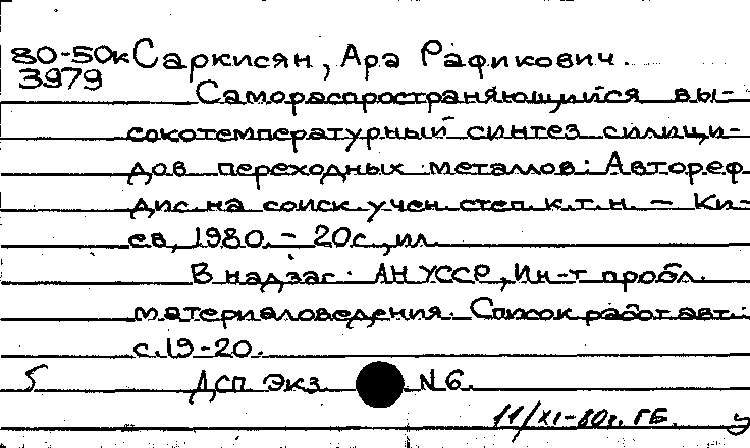 80-50к Саркисян, Ара Рафикович.
3979
Самораспространяющийся вы-
сокотемпературный синтез силици-
дов переходных металлов: Автореф
дис. на соиск. учен. степ. к.т.н. – Ки-
ев, 1980. – 20с., ил.
В надзаг. АН УССР, Ин-т пробл.
материаловедения. Список работ авт.:
с.19-20.
5 ДСП Экз. N 6.
11/XI-80г. ГБ.